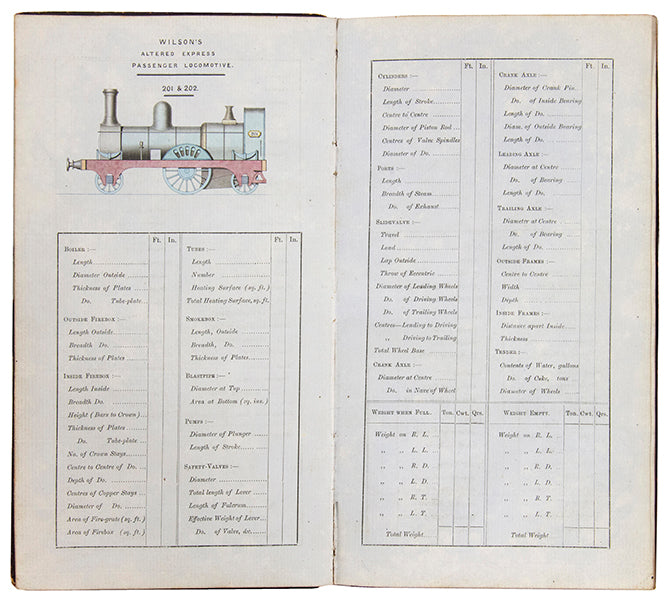 WILSON'S
ALTERED EXPRESS
PASSENGER LOCOMOTIVE.
201 & 202.
Ft. In.
BOILER :—
Length
Diameter Outside
Thickness of Plates
Do. Tube-plate
OUTSIDE FIREBOX :—
Length Outside
Breadth Do.
Thickness of Plates
INSIDE FIREBOX :—
Length Inside
Breadth Do.
Height (Bars to Crown)
Thickness of Plates
Do. Tube-plate
No. of Crown Stays
Centre to Centre of Do.
Depth of Do.
Centres of Copper Stays
Diameter of Do.
Area of Fire-grate (sq. ft.)
Area of Firebox (sq. ft.)
Ft. In.
TUBES :—
Length
Number
Heating Surface (sq. ft.)
Total Heating Surface, sq. ft.
SMOKEBOX :—
Length, Outside
Breadth, Do.
Thickness of Plates
BLASTPIPE :—
Diameter at Top
Area at Bottom (sq. ins.)
PUMPS :—
Diameter of Plunger
Length of Stroke
SAFETY-VALVES :—
Diameter
Total length of Lever
Length of Fulcrum
Effective Weight of Lever
Do. of Valve, &c.
Ft. In.
CYLINDERS :—
Diameter
Length of Stroke
Centre to Centre
Diameter of Piston Rod
Centres of Valve Spindles
Diameter of Do.
PORTS :—
Length
Breadth of Steam
Do. of Exhaust
SLIDEVALVE :—
Travel
Lead
Lap Outside
Throw of Eccentric
Diameter of Leading Wheels
Do. of Driving Wheels
Do. of Trailing Wheels
Centres—Leading to Driving
„ Driving to Trailing
Total Wheel Base
CRANK AXLE :—
Diameter at Centre
Do. in Nave of Wheel
Ft. In.
CRANK AXLE :—
Diameter of Crank Pin
Do. of Inside Bearing
Length of Do.
Diam. of Outside Bearing
Length of Do.
LEADING AXLE :—
Diameter at Centre
Do. of Bearing
Length of Do.
TRAILING AXLE :—
Diameter at Centre
Do. of Bearing
Length of Do.
OUTSIDE FRAMES :—
Centre to Centre
Width
Depth
INSIDE FRAMES :—
Distance apart Inside
Thickness
TENDER :—
Contents of Water, gallons
Do. of Coke, tons
Diameter of Wheels
WEIGHT WHEN FULL. Ton. Cwt. Qrs.
Weight on R. L.
„ „ L. L.
„ „ R. D.
„ „ L. D.
„ „ R. T.
„ „ L. T.
Total Weight
WEIGHT EMPTY. Ton. Cwt. Qrs.
Weight on R. L.
„ „ L. L.
„ „ R. D.
„ „ L. D.
„ „ R. T.
„ „ L. T.
Total Weight